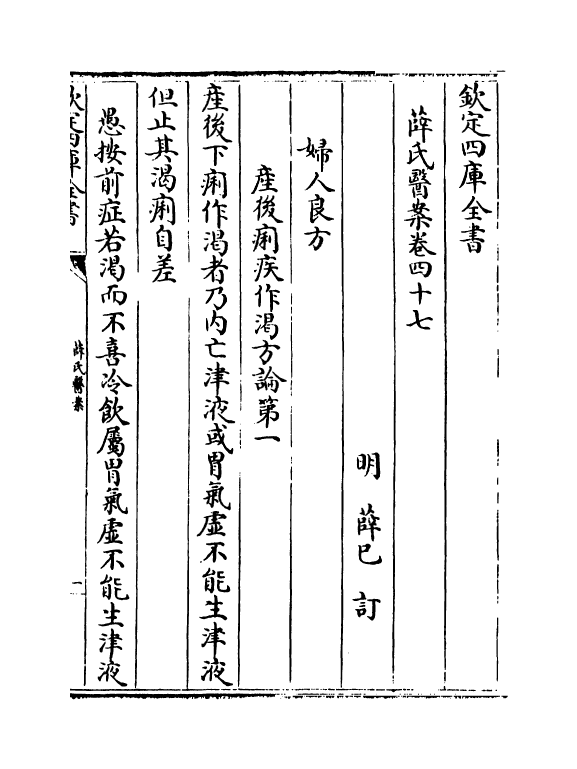 欽定四庫全書
薛氏醫案卷四十七
明 薛已 訂
婦人良方
産後痢疾作渴方論第一
産後下痢作渴者乃内亡津液或胃氣虛不能生津液
但止其渴痢自差
愚按前症若渴而不喜冷飲屬胃氣虛不能生津液
欽定四庫全書
薛氏醫案
一